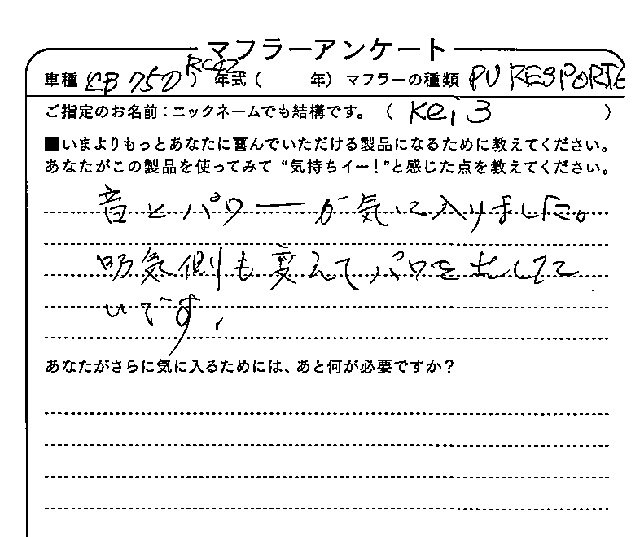 マフラーアンケート
車種 CB750 RC42) 年式( 年) マフラーの種類 PV RESPORTE
ご指定のお名前:ニックネームでも結構です。( Kei 3 )
■いまよりもっとあなたに喜んでいただける製品になるために教えてください。
あなたがこの製品を使ってみて“気持ちイー!”と感じた点を教えてください。
音とパワーが気に入りました。
吸気側も変えてパワを出してて
いです。
あなたがさらに気に入るためには、あと何が必要ですか?